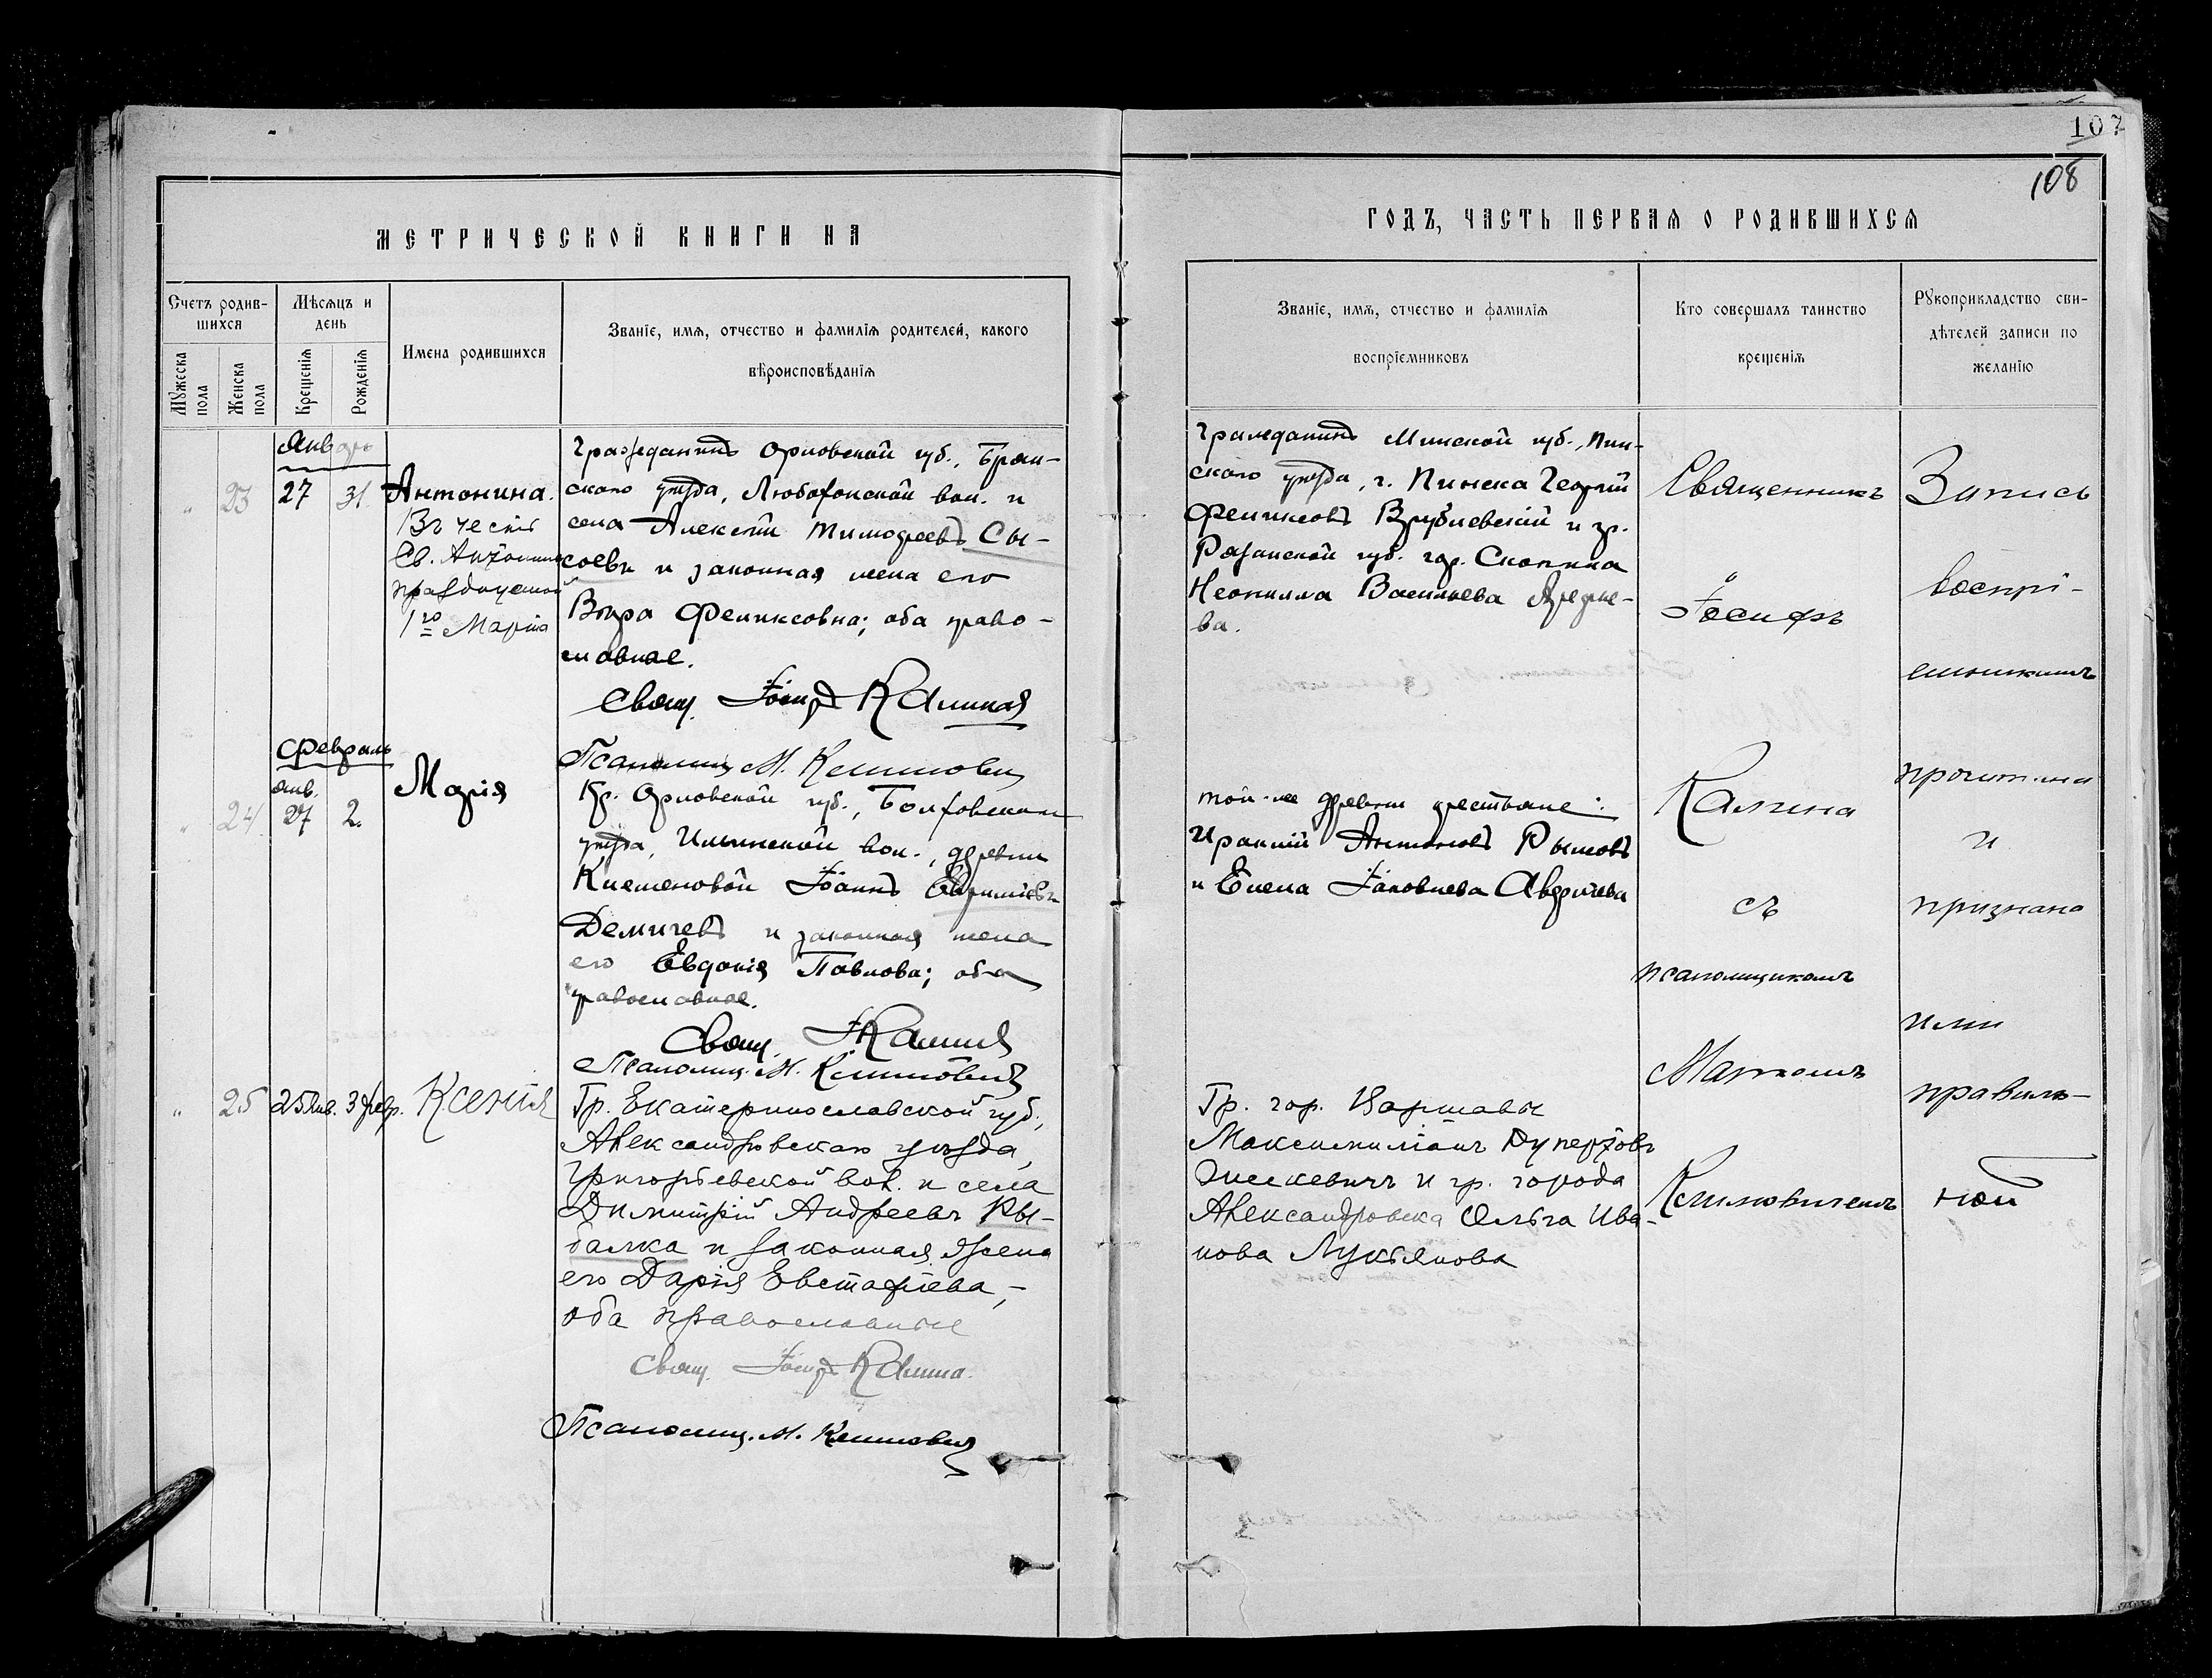 107
108
МЕТРИЧЕСКОЙ КНИГИ НА
ГОДЪ, ЧАСТЬ ПЕРВАЯ О РОДИВШИХСЯ
Счетъ родив-
шихся
Мѣсяцъ и
день
Мужеска
пола
Женска
пола
Крещенія
Рожденія
Имена родившихся
Званіе, имя, отчество и фамилія родителей, какого
вѣроисповѣданія
Званіе, имя, отчество и фамилія
воспріемниковъ
Кто совершалъ таинство
крещенія
Рукоприкладство сви-
дѣтелей записи по
желанію
Январь
" 23 27 31
Антонина.
Въ честь
Св. Антонины
празднуемой
1го Марта
Гражданинъ Орловской губ., Брян-
скаго уѣзда, Любохонской вол. и
села Алексѣй Тимофеевъ Сы-
соевъ и законная жена его
Вѣра Феликсовна; оба право-
славные.
Свящ. Іосифъ Калина
Псаломщ. М. Климовичъ
Гражданинъ Минской губ., Пин-
скаго уѣзда, г. Пинска Георгій
Феликсовъ Врублевскій и гр.
Рязанской губ. гор. Скопина
Неонилла Васильева
ва.
Февраль
янв.
" 24 27 2.
Марія
Кр. Орловской губ., Болховскаго
уѣзда, Ильинской вол., деревни
Іоаннъ
Демичевъ и законная жена
его Евдокія Павлова; оба
православные.
Свящ. І Калина
Псаломщ. М. Климовичъ
той-же деревни крестьяне:
Ираклій Антоновъ Рыжовъ
и Елена Іаковлева
" 25 25 Янв. 3 Февр.
Ксенія
Гр. Екатеринославской губ.,
Александровскаго уѣзда,
Григорьевской вол. и села
Димитрій Андреевъ Ры-
балка и законная жена
его Дарія Евстафіева,-
оба православные
Свящ. Іосифъ Калина.
Псаломщ. М. Климовичъ
Гр. гор. Варшавы
Максимиліанъ
и гр. города
Александровска Ольга Ива-
нова Лукьянова
Священникъ
Іосифъ
Калина
съ
псаломщикомъ
Маркомъ
Климовичемъ
Запись
воспрі-
емниками
прочитана
и
признана
ими
правиль-
ной